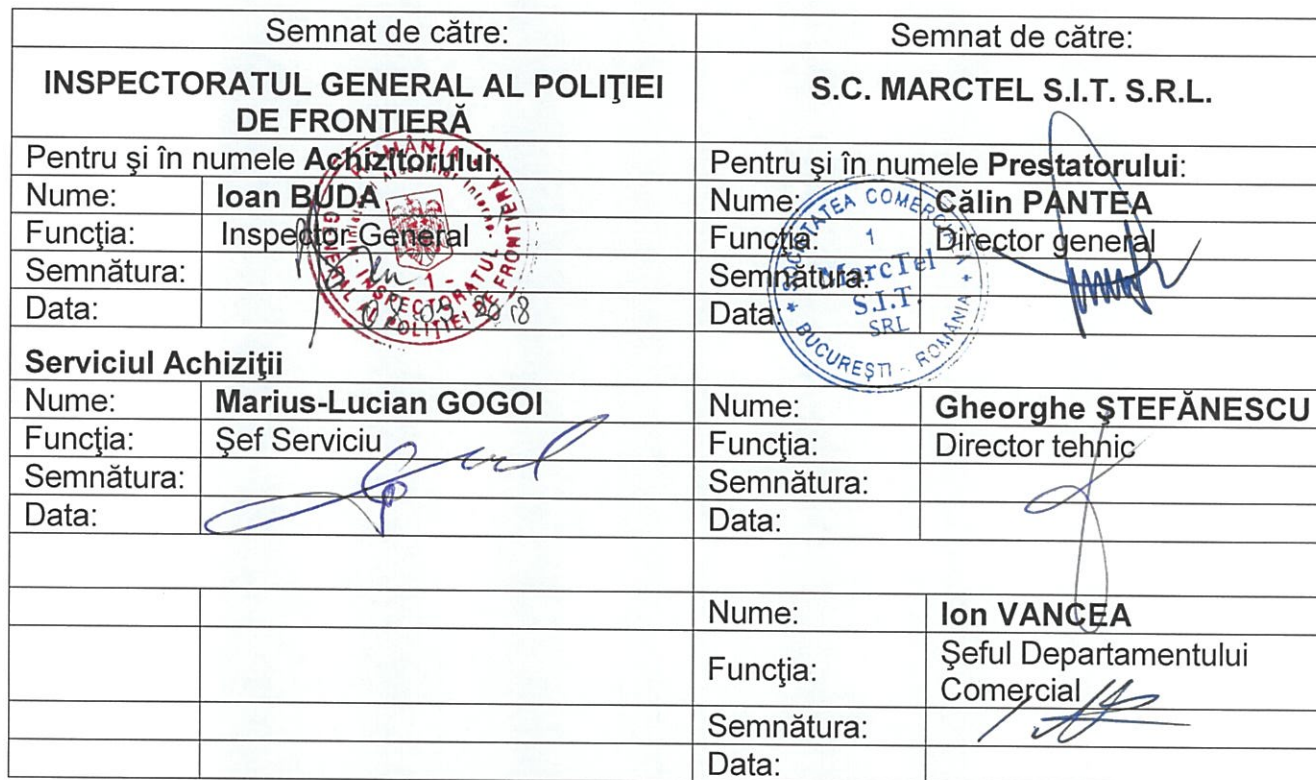 Semnat de către:
INSPECTORATUL GENERAL AL POLIŢIEI
DE FRONTIERĂ
Pentru şi în numele Achizitorului:
Nume: Ioan BUDA
Funcţia: Inspector General
Semnătura:
Data:
Serviciul Achiziţii
Nume: Marius-Lucian GOGOI
Funcţia: Şef Serviciu
Semnătura:
Data:
Semnat de către:
S.C. MARCTEL S.I.T. S.R.L.
Pentru şi în numele Prestatorului:
Nume: Călin PANTEA
Funcţia: Director general
Semnătura:
Data:
Nume: Gheorghe ŞTEFĂNESCU
Funcţia: Director tehnic
Semnătura:
Data:
Nume: Ion VANCEA
Funcţia: Şeful Departamentului
Comercial
Semnătura:
Data:
ROMÂNIA
INSPECTORATUL
GENERAL AL POLIŢIEI DE FRONTIERĂ
- 1 -
SOCIETATEA COMERCIALĂ
1
MarcTel
S.I.T.
SRL
BUCUREŞTI - ROMÂNIA